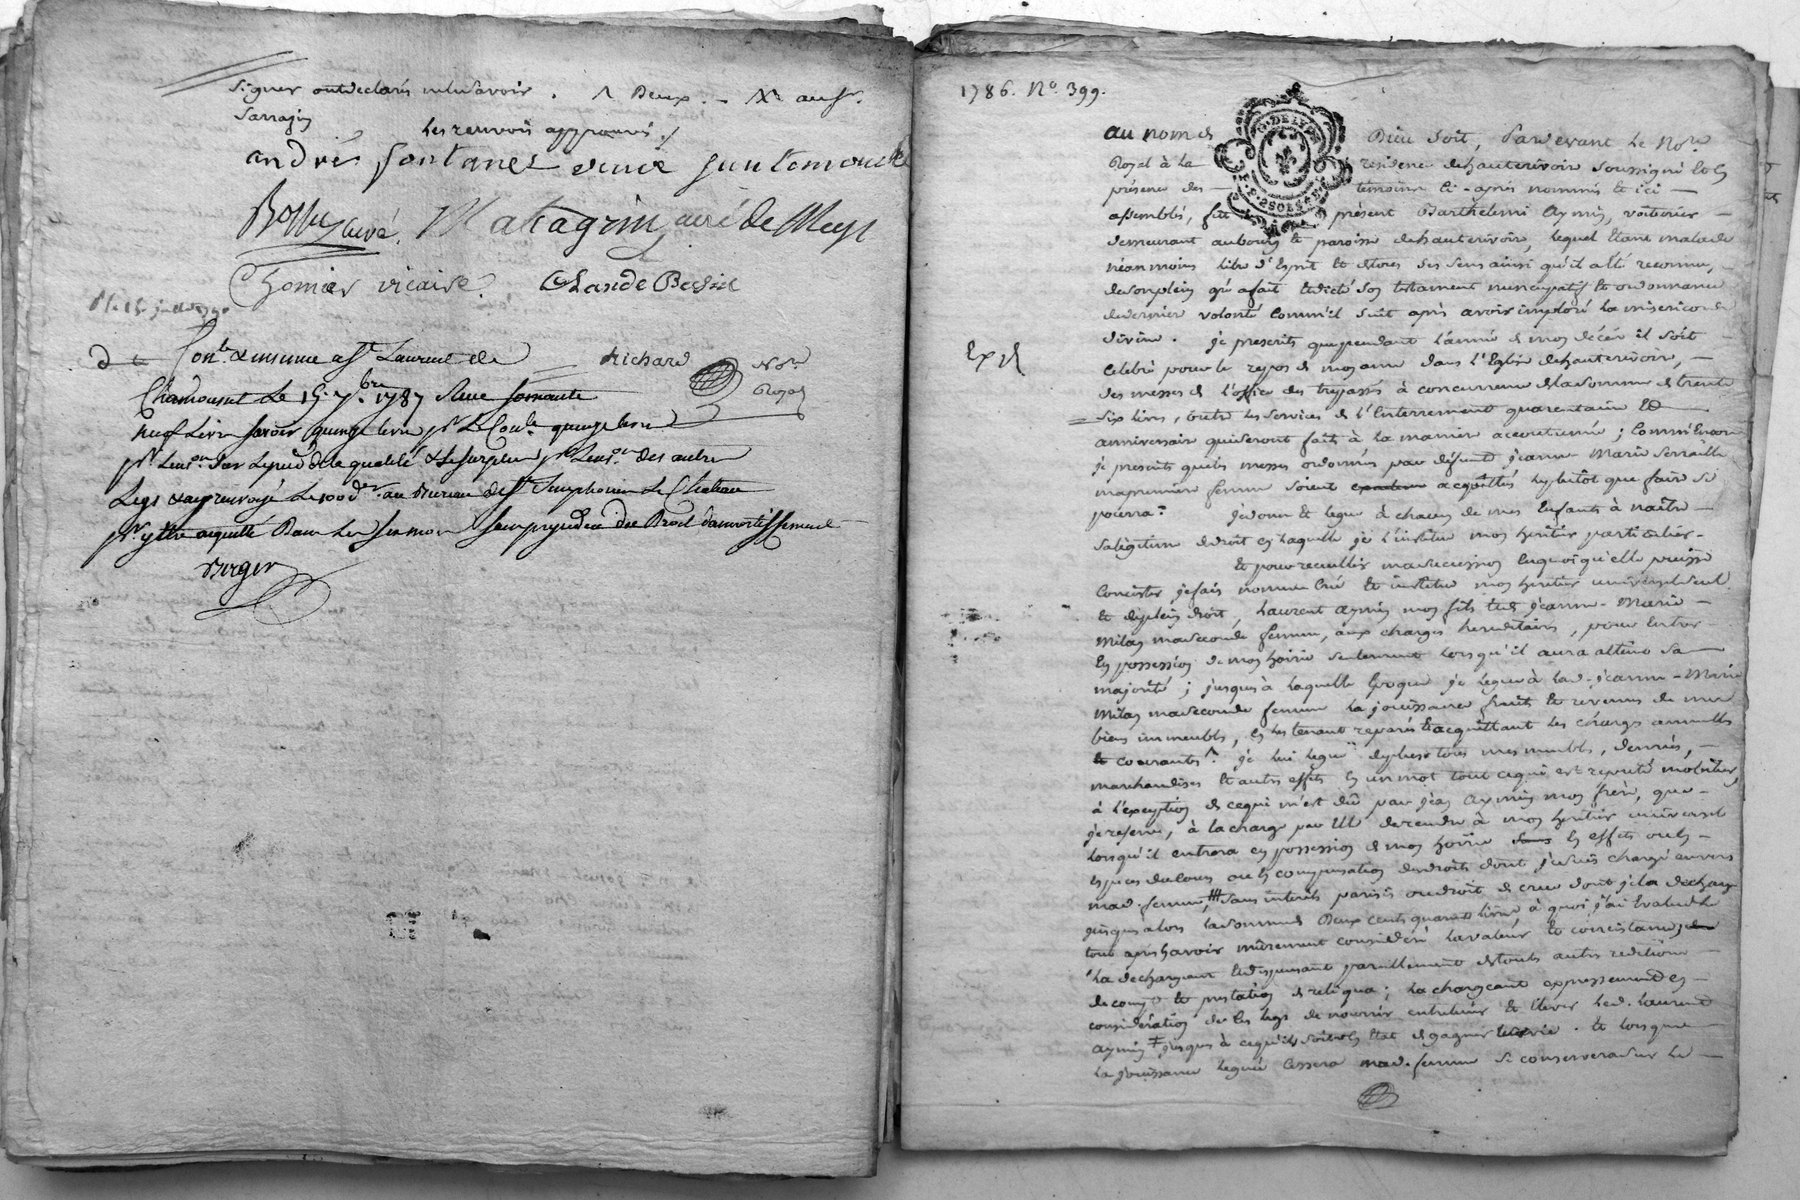 signer ont déclaré ne le savoir. deux
Sarrazin
les renvois approuvés./
andré fontanes
curé. Matagrin curé de Meys
Chomier vicaire. Claude
St Laurent de
Richard No.re
Royal
Chamousset le 15. 7.bre 1787 Reçu soixante
neuf livres savoir quinze livres pr. le Con.le quinze livres
de la qualité & le surplus des autres
Legs & ay renvoyé le 100 d.er au Bureau de St Simphorien le Château
pr. y être acquitté sans préjudice du Droit d'amortissement
Berger
1786. No. 399.
au nom de Dieu soit, Pardevant le No.re
Royal à la résidence de hauterivoir soussigné et en
présence des témoins ci-après nommés et ici
assemblés, fut présent Barthelemi aymin, voiturier
demeurant au bourg et paroisse de hauterivoir, lequel étant malade
néanmoins libre d'Esprit et de tous ses sens ainsi qu'il a été reconnu,
de son plein gré a fait et dicté son testament nuncupatif et ordonnance
de dernière volonté comm'il suit après avoir imploré la misericorde
divine. je prescris que pendant l'année de mon décès il soit
Exp.d
célébré pour le repos de mon ame dans l'Eglise de hauterivoir,
des messes de l'office des trépassés à concurrence de la somme de trente
six livres, outre les services de l'Enterrement quarantaine et
anniversaire qui seront faits à la manière accoutumée; comm'Encore
je prescris que les messes ordonnées par défunte jeanne Marie
ma première femme soient acquittées le plutôt que faire se
pourra. je donne et legue à chacun de mes Enfants à naître
sa légitime de droit en laquelle je l'institue mon héritier particulier.
et pour recueillir ma succession en quoi qu'elle puisse
consister je fais nomme crée et institue mon héritier universel seul
et de plein droit, Laurent aymin mon fils et de jeanne-Marie
Milan ma seconde femme, aux charges hereditaires, pour entrer
en possession de mon hoirie seulement lorsqu'il aura atteint sa
majorité; jusques à laquelle Epoque je legue à lad. jeanne-Marie
Milan ma seconde femme la jouissance fruits et revenus de mes
biens immeubles, en les tenant réparés et acquittant les charges annuelles
et courantes. je lui legue de plus tous mes meubles, denrées,
marchandises et autres effets en un mot tout ce qui est reputé mobilier,
à l'exception de ce qui m'est dû par jean aymin mon frère, que
je reserve, à la charge par elle de rendre à mon héritier universel
lorsqu'il entrera en possession de mon hoirie en effets ou en
espèces de cours ou en compensation des droits dont je suis chargé envers
mad. femme, sans intérêts parisis ou droit de crue dont je la décharge
jusques alors la somme de Deux cents quarante livres, à quoi j'ai évalué le
tout après avoir mûrement considéré la valeur et consistance,
la déchargeant et dispensant pareillement de toutes autres redditions
de compte et prestation de reliqua; la chargeant expressement en
considération de ces legs de nourrir entretenir et élever led. Laurent
aymin jusques à ce qu'il soit en Etat de gagner sa vie. et lorsque
la jouissance leguée cessera mad. femme se conservera sur le